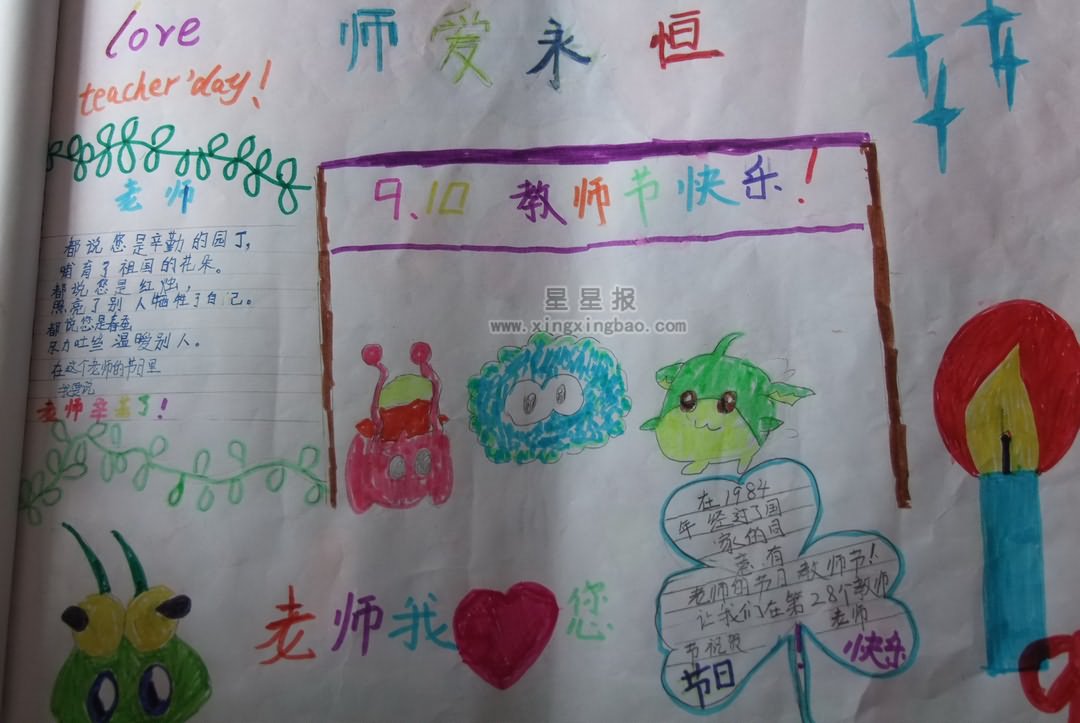 love
teacher'day!
师爱永恒
9.10 教师节快乐!
老师
都说您是辛勤的园丁,
哺育了祖国的花朵。
都说您是红烛,
照亮了别人牺牲了自己。
都说您是春蚕
尽力吐丝温暖别人。
在这个老师的节日里
我要说
老师辛苦了!
星星报
www.xingxingbao.com
在1984
年经过了国
家的同
意有
老师的节日教师节!
让我们在第28个教师
节祝贺 老师
节日快乐!
老师我 您